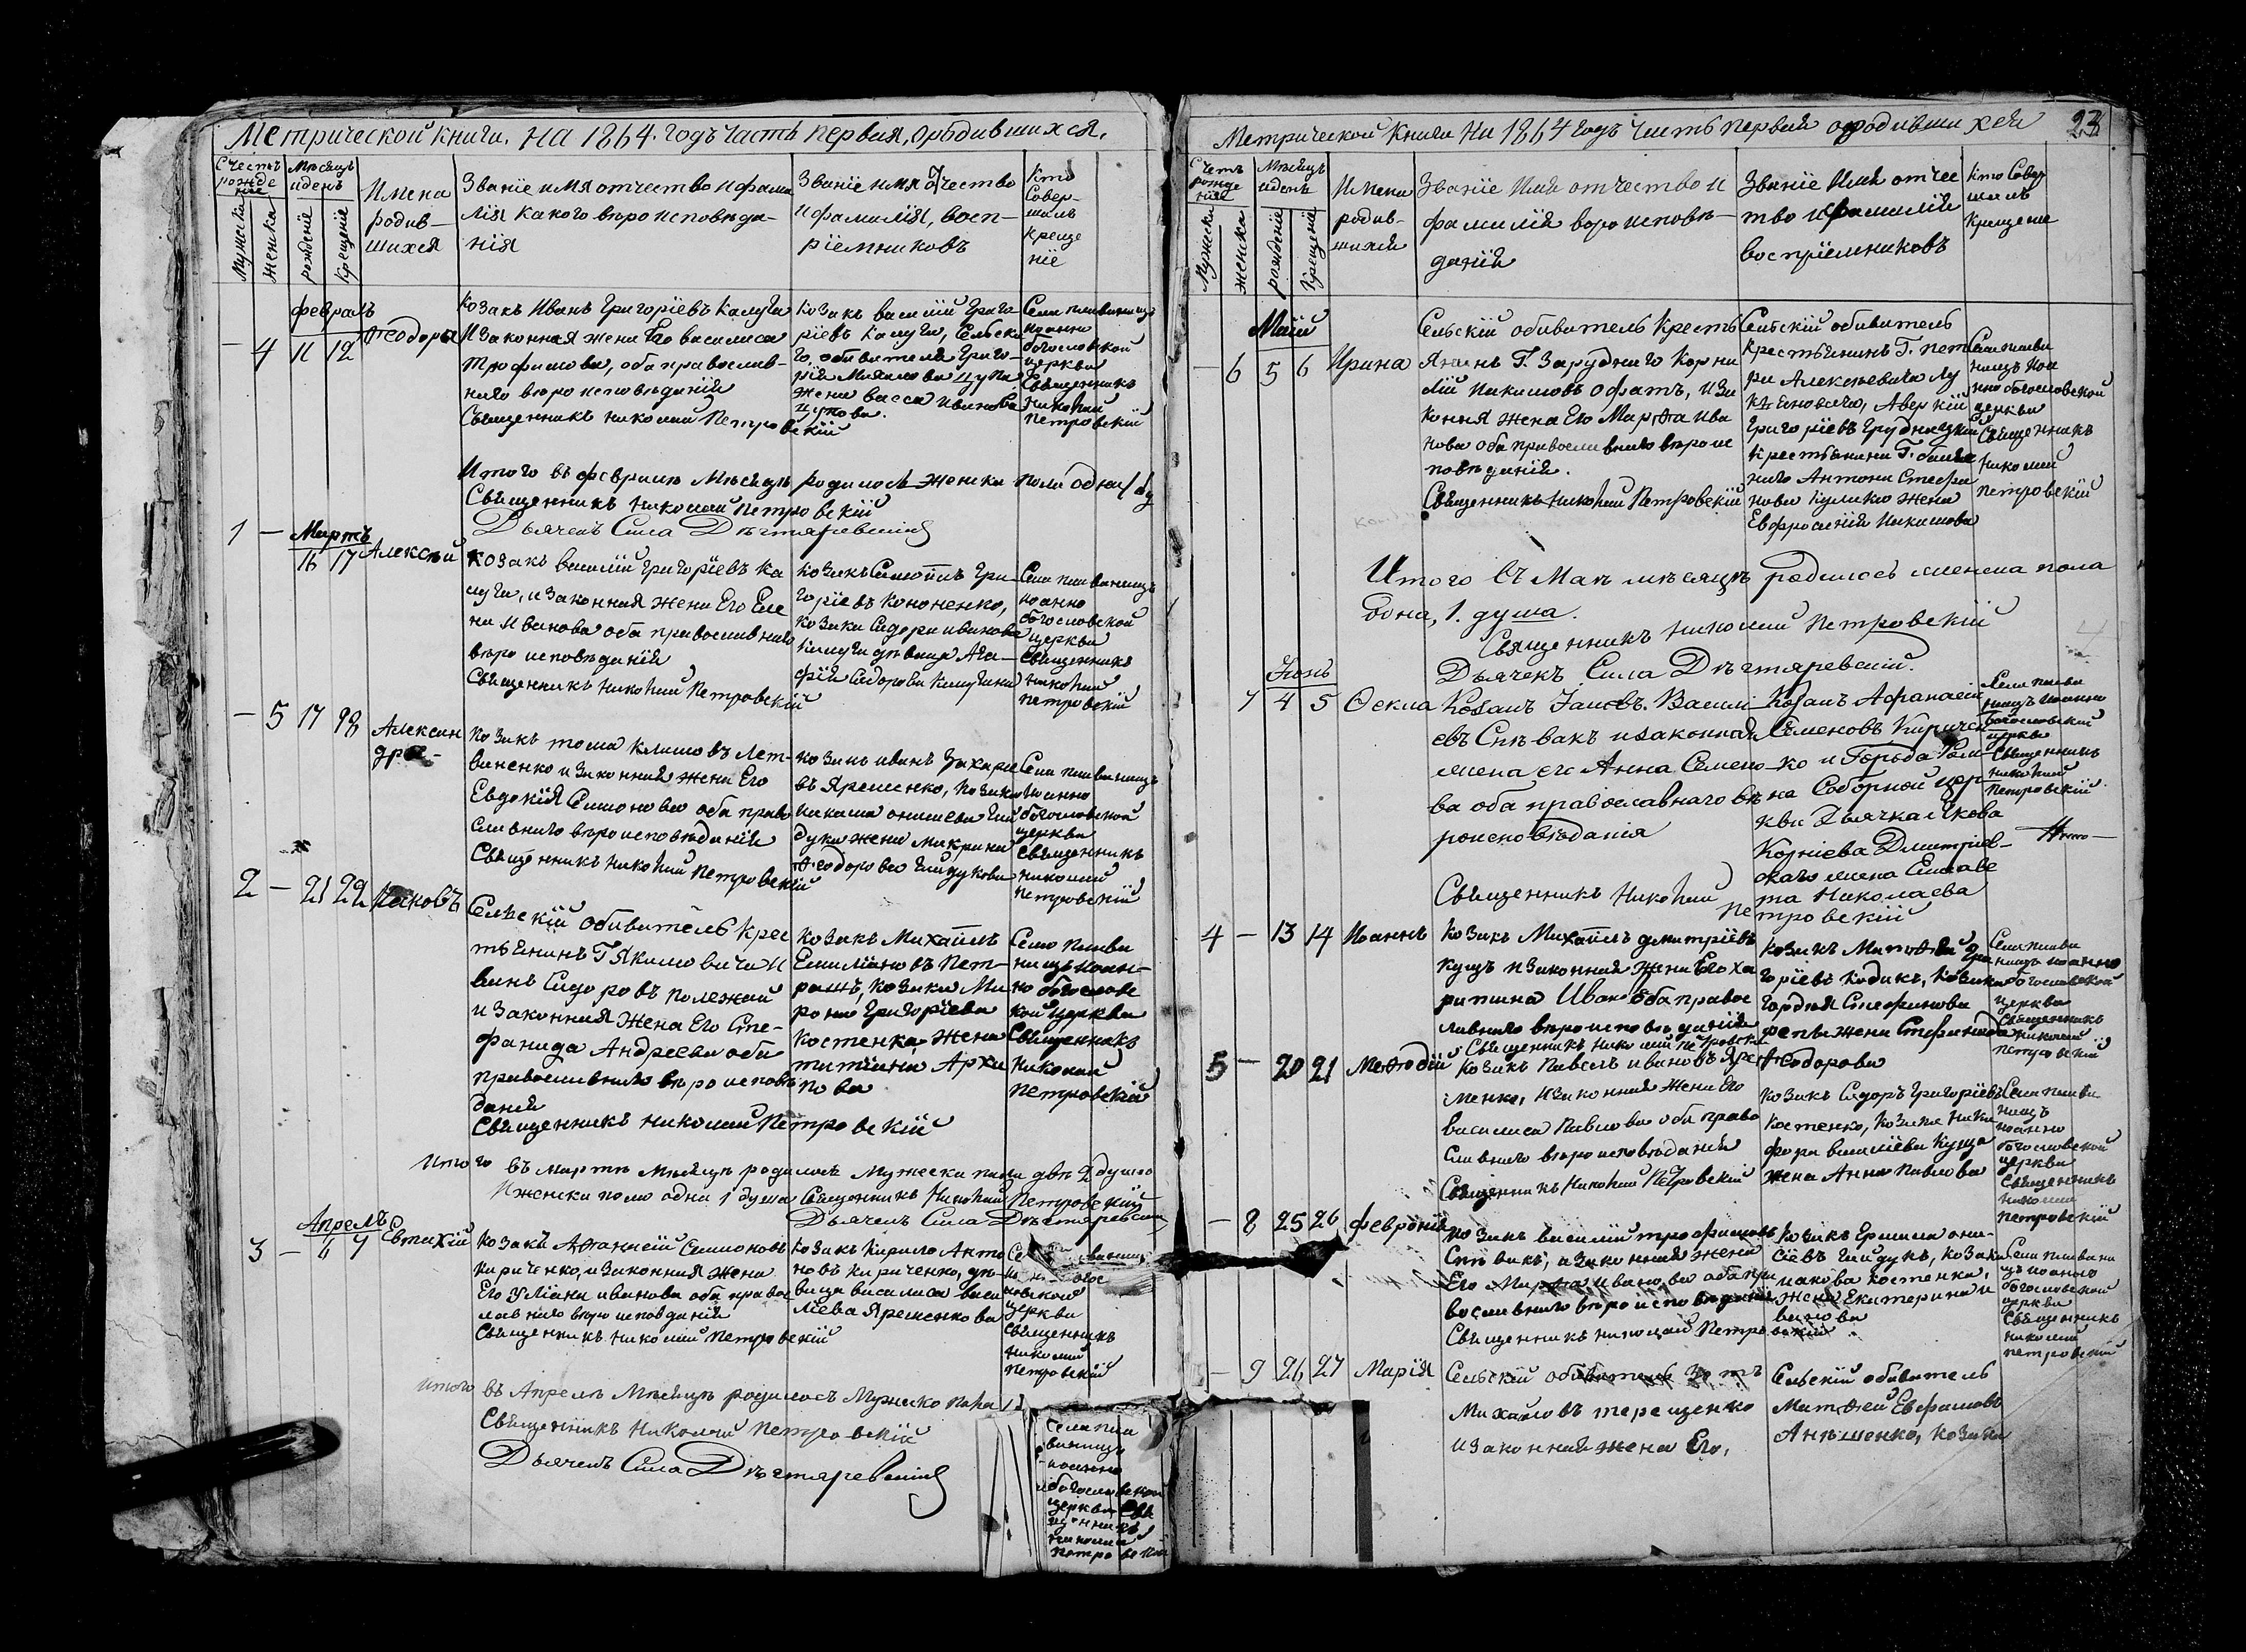 Метрической книги. на 1864. годъ часть первая, ородившихся.
Счетъ рожде ніе
Мѣсяцъ иденъ
Имена родив- шихся
Званіе имя отчество ифами
лія какого вѣроисповѣда-
нія
Званіе имя отчество
ифамилія, восп-
ріемниковъ
Кто
Совер-
шалъ
креще
ніе
Мужеска
Женска
рожденіе
Крещеніе
февраль
- 4 11 12 Ѳеодора
Козакъ Иванъ Григоріевъ Калуга
И законная жена Его василиса
Трофимова, оба православ-
наго вѣроисповѣданія
Священникъ николай Петровскій
Козакъ василій Григо
ріевъ Калуга, Сельска
го, обивателя Григо-
рія Михайлова
жена васса иванова
Села пивинищъ
иоанно
богословской
церкви
Священникъ
николай
Петровскій
Итого въ февралѣ Мѣсяцѣ родилось женска пола одна 1 ду
Священникъ николай Петровскій
Дьячекъ Сила Дѣгтяревскій
Мартъ
1 - 16 17 Алексѣй
козакъ василій григоріевъ Ка
луга, изаконная жена Его Еле
на Иванова оба православнаго
вѣро исповѣданія
Священникъ николай Петровскій
козакъ Самоилъ Гри-
горіевъ Кононенко,
козака Сидора иванова
калуги дѣвица Ага-
фія Сидорова Калугина
Села пивинищъ
иоанно
богословской
церкви
Священникъ
николай
Петровскій
- 5 17 98 Александра-
козакъ тома Климовъ Лет-
виненко изаконная жена Его
Евдокія Симонова оба право
славнаго вѣроисповѣданія
Священникъ николай Петровскій
козакъ иванъ Захарие
въ Яременко, козака
жена макрина
Ѳеодорова Гайдукова
Села пивинищъ
иоанно
богословской
церкви
священникъ
николай
петровскій
2 - 21 22 Иаковъ
Селскій обиватель крес
тьянинъ Г Якимовича И
ванъ Сидоровъ полежай
и законная жена Его Сте-
фанида Андреева оба
православнаго вѣроисповѣ
данія
Священникъ николай Петровскій
козакъ Михаилъ
Емиліановъ Пет-
рашъ, козака Ми
рона Григоріева
Костенка жена
татіана Архи
пова
Села пиви
нищъ иоан-
но богослове
кой церкви
Священникъ
николай
петровскій
Итого въ мартѣ мѣсяцѣ родилось мужеска пола двѣ 2 души
И женска пола одна 1 душа Священникъ николай Петровскій
Дьячекъ Сила Дѣгтяревскій
Апрелъ
3 - 6 7 Евтихій
козакъ Аѳанасій Симоновъ
кириченко, изаконная жена
Его Уліана иванова оба правос
лавнаго вѣро исповданія
Священникъ николай петровскій
козакъ Кирило Анто
новъ Кириченко, дѣ-
вица василиса васи
ліева Яременкова
церкви
Священникъ
николай
петровскій
Итого въ Апрелѣ мѣсяцѣ родилось Мужеско пола 1
Священникъ николай петровскій
Дьячекъ Сила Дѣгтяревскій
Села пив
винищъ
иоанно
богословской
церкви Свя
щенникъ
николай
петровскій
Метрической Книги на 1864 годъ часть первая ородившихся
23
Счетъ рожде ніе
Мѣсяцъ иденъ
Имена родив- шихся
Званіе Имя отчество И
фамилія вѣроисповѣ-
данія
Званіе Имя отчес
тво ифамилія
воспріемниковъ
Кто Совер
шалъ
крещение
Мужеска
Женска
рожденіе
Крещеніе
Маій
- 6 5 6 Ирина
Сельскій обиватель Кресть
янинъ Г. Заруднаго Корни
лій Никитовъ Офатъ, иза
конная жена Его Марѳа ива
нова оба православнаго вѣроис
повѣданія.
Священникъ Николай Петровскій
Сельскій обиватель
Крестьянинъ Г. Пет
ра Алексѣевича Лу
кьяновича, Аверкій
григоріевъ Грудницкій
крестьянина Г.
Антона Стефа
нова Кулика жена
Евфросинія Никитова
Села пиви
нищъ иоа
нно богословской
церкви
Священникъ
николай
петровскій
Итого въ Маѣ мѣсяцѣ родилось женска пола
одна, 1. душа.
Священникъ николай петровскій
Дьячекъ Сила Дѣгтяревскій.
Іюнь
7 4 5 Ѳекла
Козакъ Іаковъ. Васили-
евъ Спѣвакъ изаконная
жена его Анна Семено-
ва оба православнаго вѣ
роисповѣданія
Священникъ николай
Петровскій
Козакъ Афанасій
Семеновъ Киричен
ко и Города Ром-
на Соборной цер-
кви Дьячка Якова
Корніева Дмитріев-
скаго жена Елисаве
та Николаева
Села пиви
нищъ иоанно
богословской
церкви
Священникъ
николай
петровскій
4 - 13 14 Иоаннъ
козакъ Михаилъ дмитріевъ
Кущъ изаконная жена Его Ха
ритина Иван оба правос
лавнаго вѣроисповѣданія
Священникъ николай петровскій
козакъ Матѳей Гри
горіевъ Кодикъ, козака
Гордія Стефанова
жена Стефанида
Ѳеодорова
Села пиви
нищъ иоанно
богословской
церкви
Священникъ
николай
петровскій
5 - 20 21 Меѳодій
козакъ Павелъ ивановъ Яре-
менко, изаконная жена Его
василиса Павлова оба право
славнаго вѣроисповѣданія
Священникъ николай Петровскій
козакъ Сидоръ Григоріевъ
костенко, козака ники
фора василіева Куща
жена Анна Павлова
Села пиви
нищъ
иоанно
богословской
церкви
Священникъ
николай
петровскій
- 8 25 26 февронія
козакъ василій трофимовъ
Спѣвакъ, изаконная жена
Его Марѳа иванова оба пра
вославнаго вѣроисповѣданія
Священникъ николай Петровскій
козакъ Ермила они-
сіевъ Гайдукъ, козака
иакова костенка,
жена Екатерина и
ванова
Села пивини
щъ иоанно
богословской
церкви
Священникъ
николай
петровскій
- 9 26 27 Марія
Сельскій обиватель Зотъ
Михайловъ терещенко
изаконная жена Его,
Сельскій обиватель
Матѳей Евфимовъ
Анищенко, козака